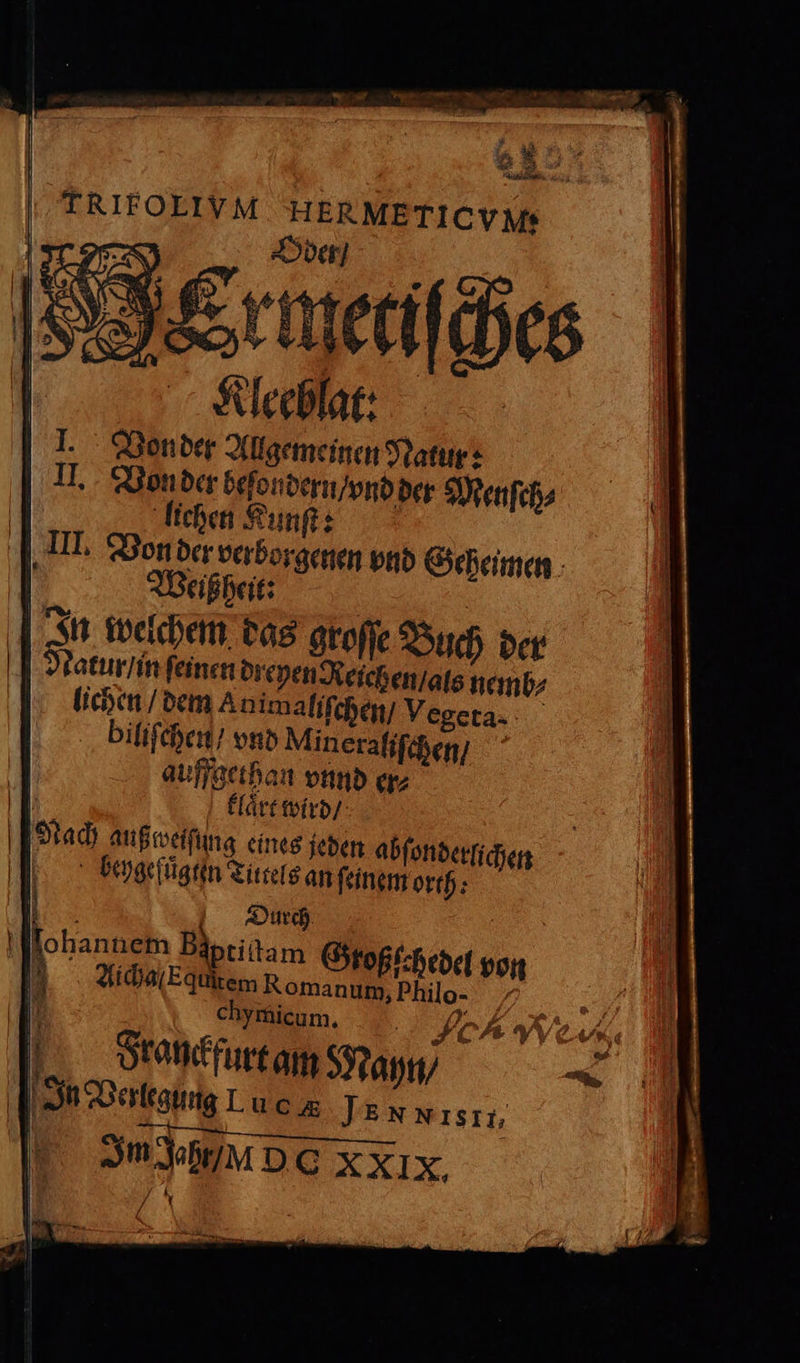 TRIFOLIVM HERMETICVM:
Oder/
HErmetiſches
Kleeblat:
I. Von der Allgemeinen Natur:
II. Von der beſondern/vnd der Menſch⸗
lichen Kunſt:
III. Von der verborgenen vnd Geheimen
Weißheit:
In welchem das groſſe Buch der
Natur/in ſeinen dreyen Reichen/als nemb⸗
lichen/dem Animaliſchen/ Vegeta-
biliſchen/ vnd Mineraliſchen/
auffgethan vnnd er⸗
klaͤrt wird/
Nach außweiſung eines jeden abſonderlichen
beygefuͤgten Tittels an ſeinem orth:
Durch
Iohannem Baptiſtam Großſchedel von
Aicha/Equitem Romanum, Philo-
chymicum.
Franckfurt am Mayn/
In Verlegung LUCÆ JENNISII,
Im Jahr/MDC XXIX.